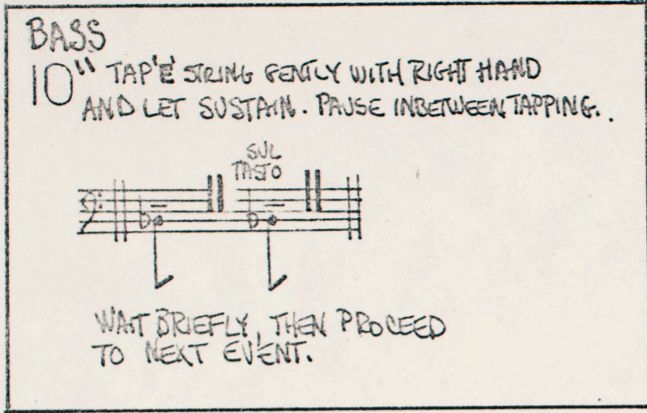 BASS
10" TAP 'E' STRING GENTLY WITH RIGHT HAND
AND LET SUSTAIN. PAUSE INBETWEEN TAPPING.
SUL
TASTO
WAIT BRIEFLY, THEN PROCEED
TO NEXT EVENT.